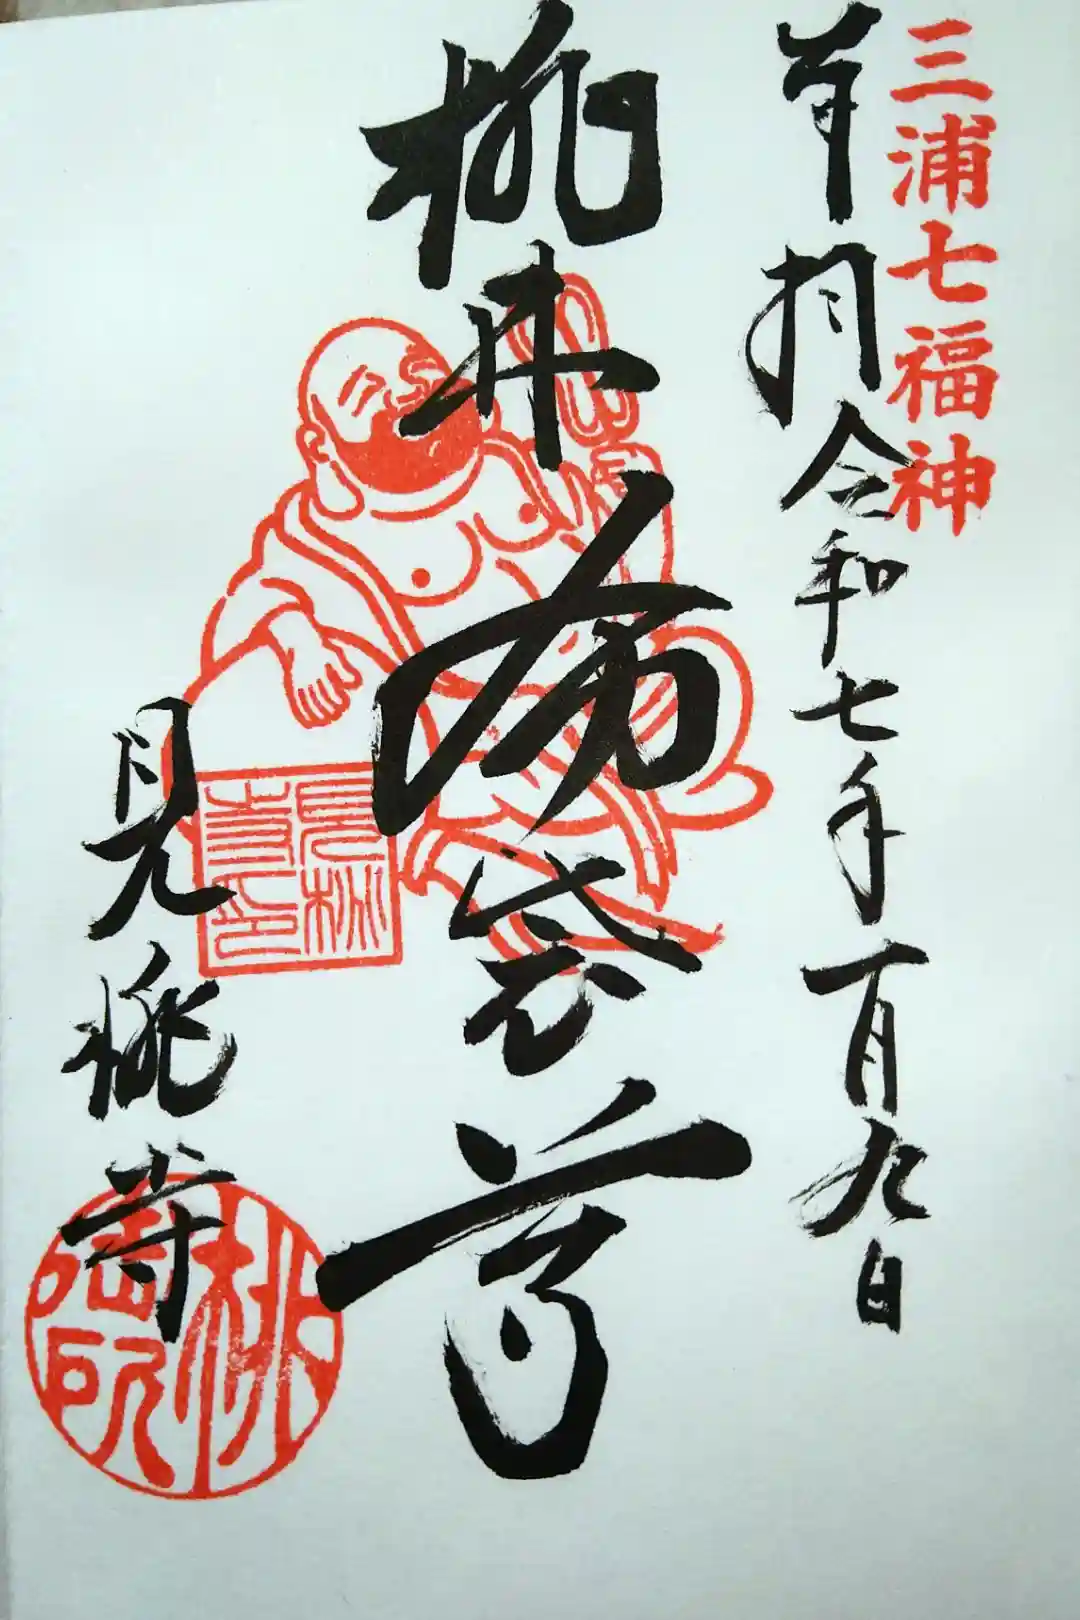 三浦七福神
奉拝 令和七年一月九日
桃林布袋尊
見桃寺
見桃
寺印
桃
御印